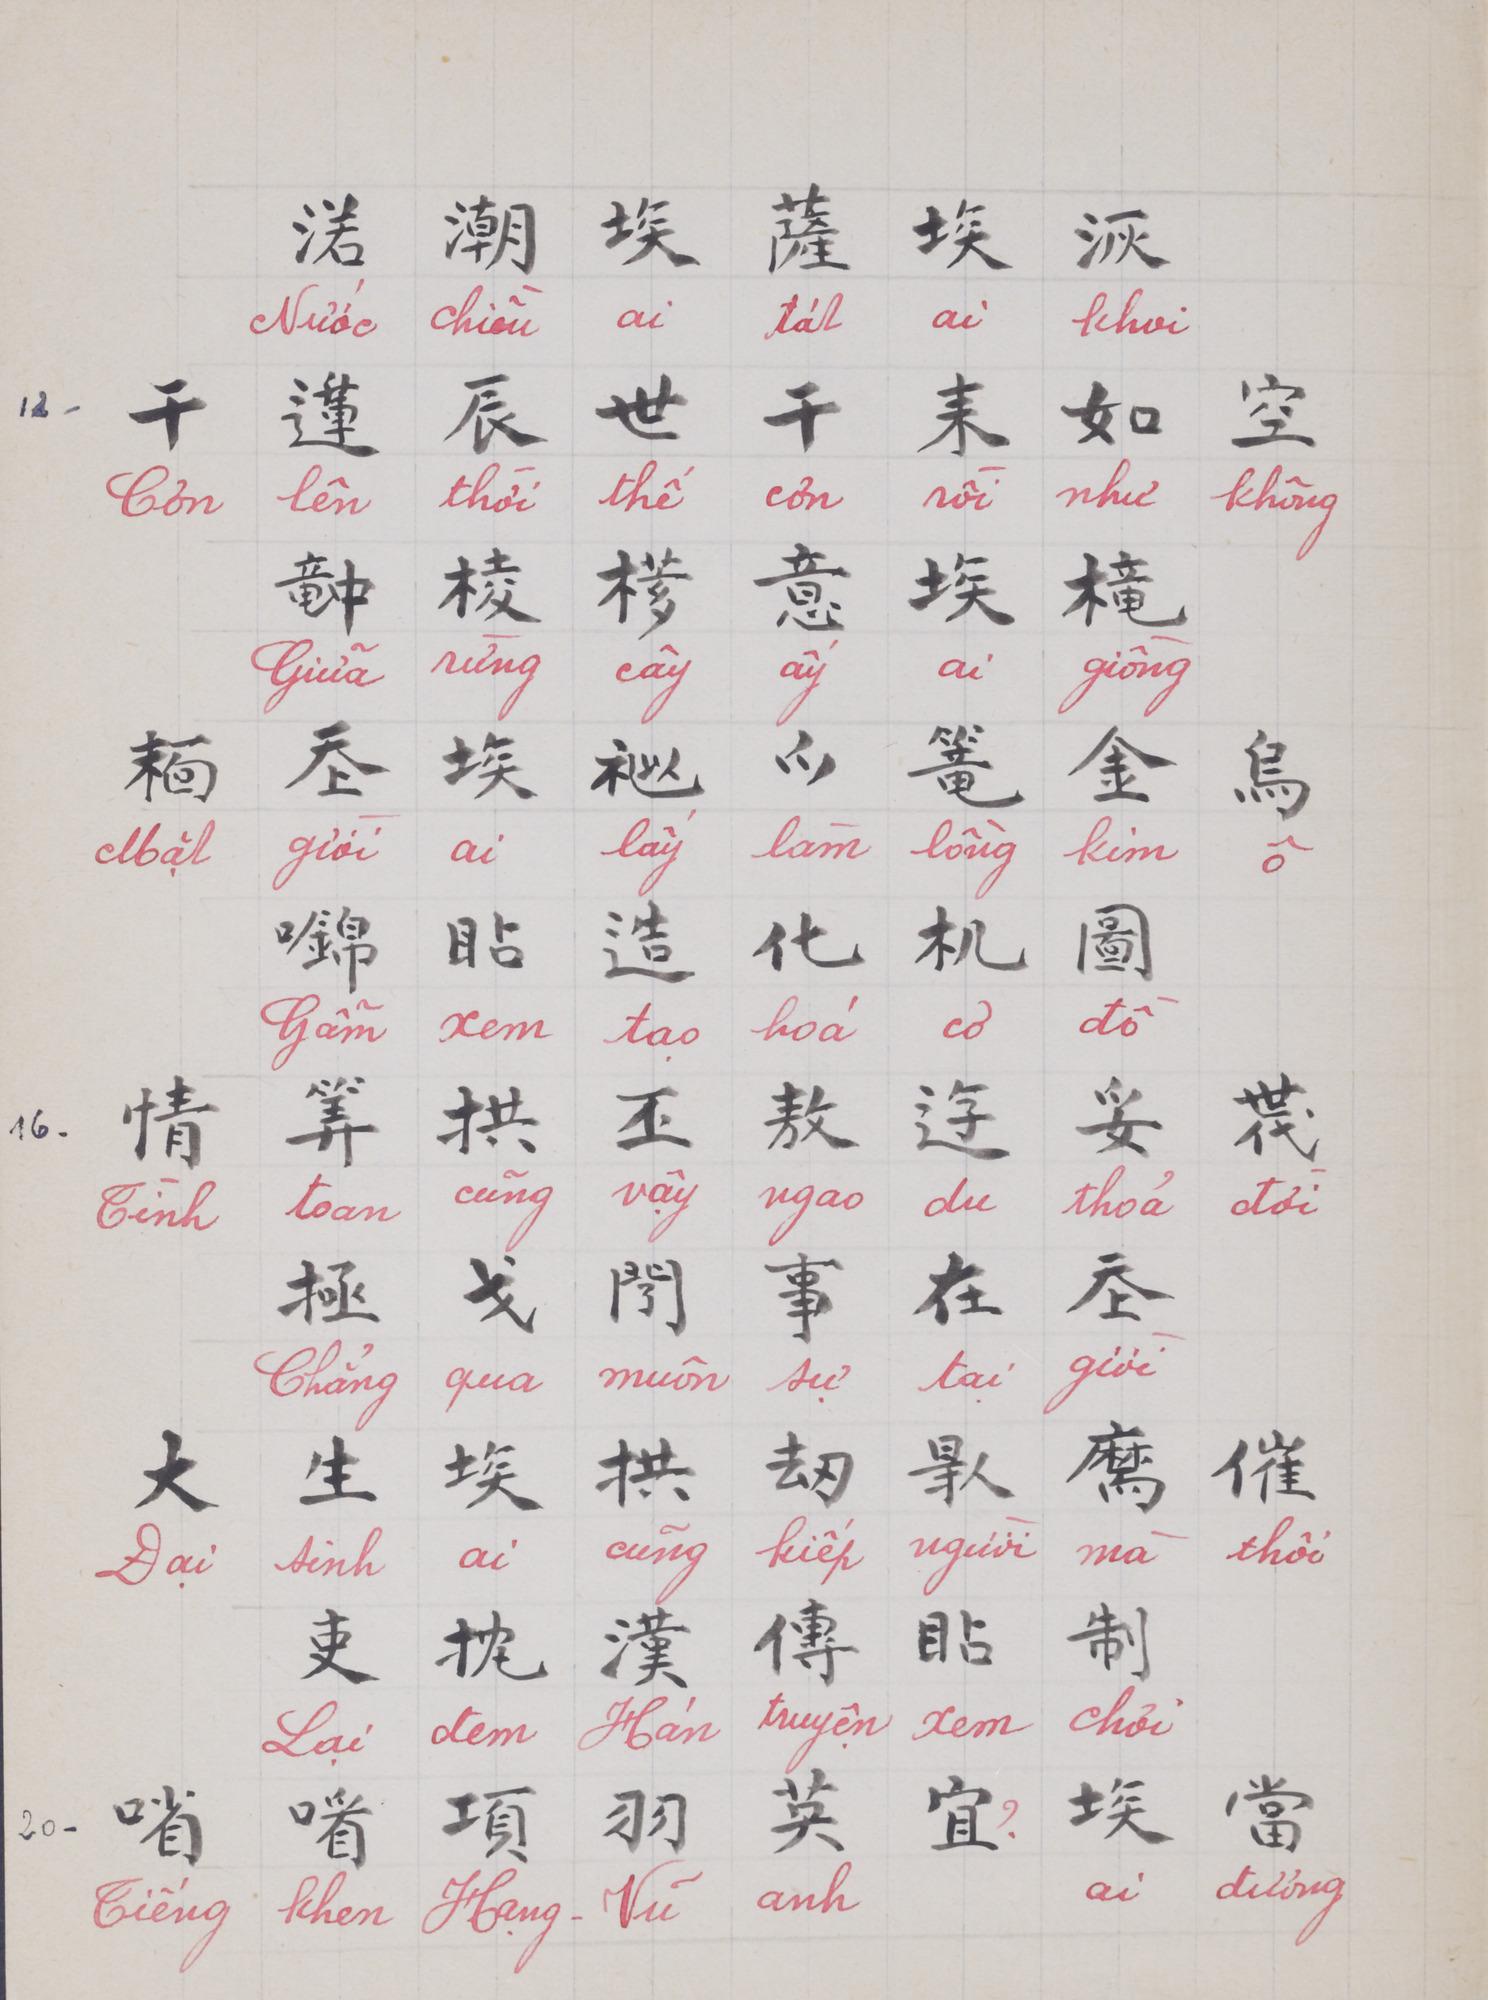 渃潮埃薩埃派
Nước chiều ai tát ai khơi
12- 干蓮辰世干耒如空
Cơn lên thời thế cơn rồi như không
棱意埃
Giữa rừng cây ấy ai giồng
埃金烏
Mặt giời ai lấy làm lồng kim ô
貼造化机圖
Gẫm xem tạo hoá cơ đồ
16- 情筭拱丕敖逰妥
Tình toan cũng vậy ngao du thoả đời
極戈事在
Chẳng qua muôn sự tại giời
大生埃拱劫催
Đại sinh ai cũng kiếp người mà thôi
吏漢傳貼制
Lại đem Hán truyện xem chơi
20- 項羽英宜? 埃當
Tiếng khen Hạng-Vũ anh ai đương